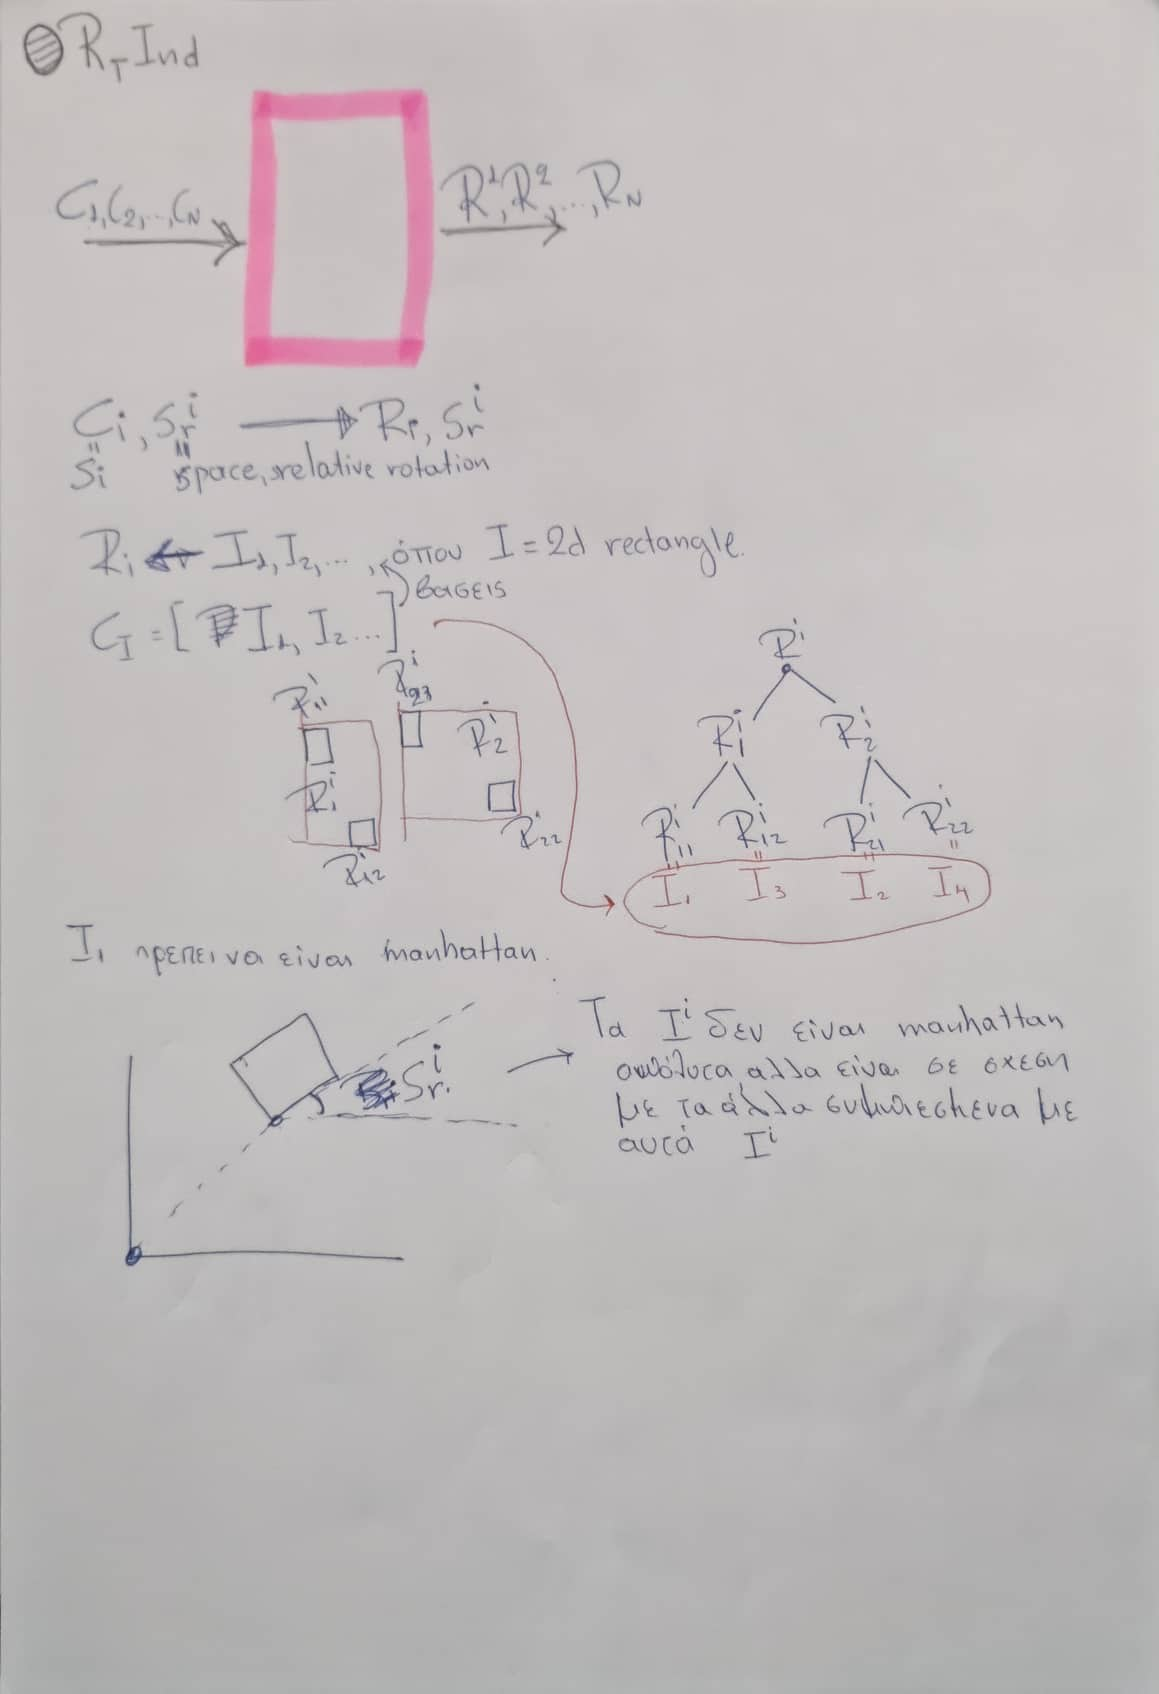 R_T Ind
C₁,C₂,..,C_N
R¹,R²,...,R_N
C_i, S_r^i → R_i, S_r^i
S_i space, relative rotation
R_i ← I₁, I₂, ... , όπου I = 2d rectangle.
βασεις
C_I = [ I₁, I₂ ...]
R^i
R^i_11 R^i_23
R^i_2
R^i_1 R^i_2
R^i_1
R^i_11 R^i_12 R^i_21 R^i_22
R_22
R_12
I₁ I₃ I₂ I₄
I₁ πρεπει να είναι manhattan.
Τα I^i δεν είναι manhattan
S_r^i
απόλυτα, αλλα είναι σε σχεση
με τα άλλα με
αυτά I^i